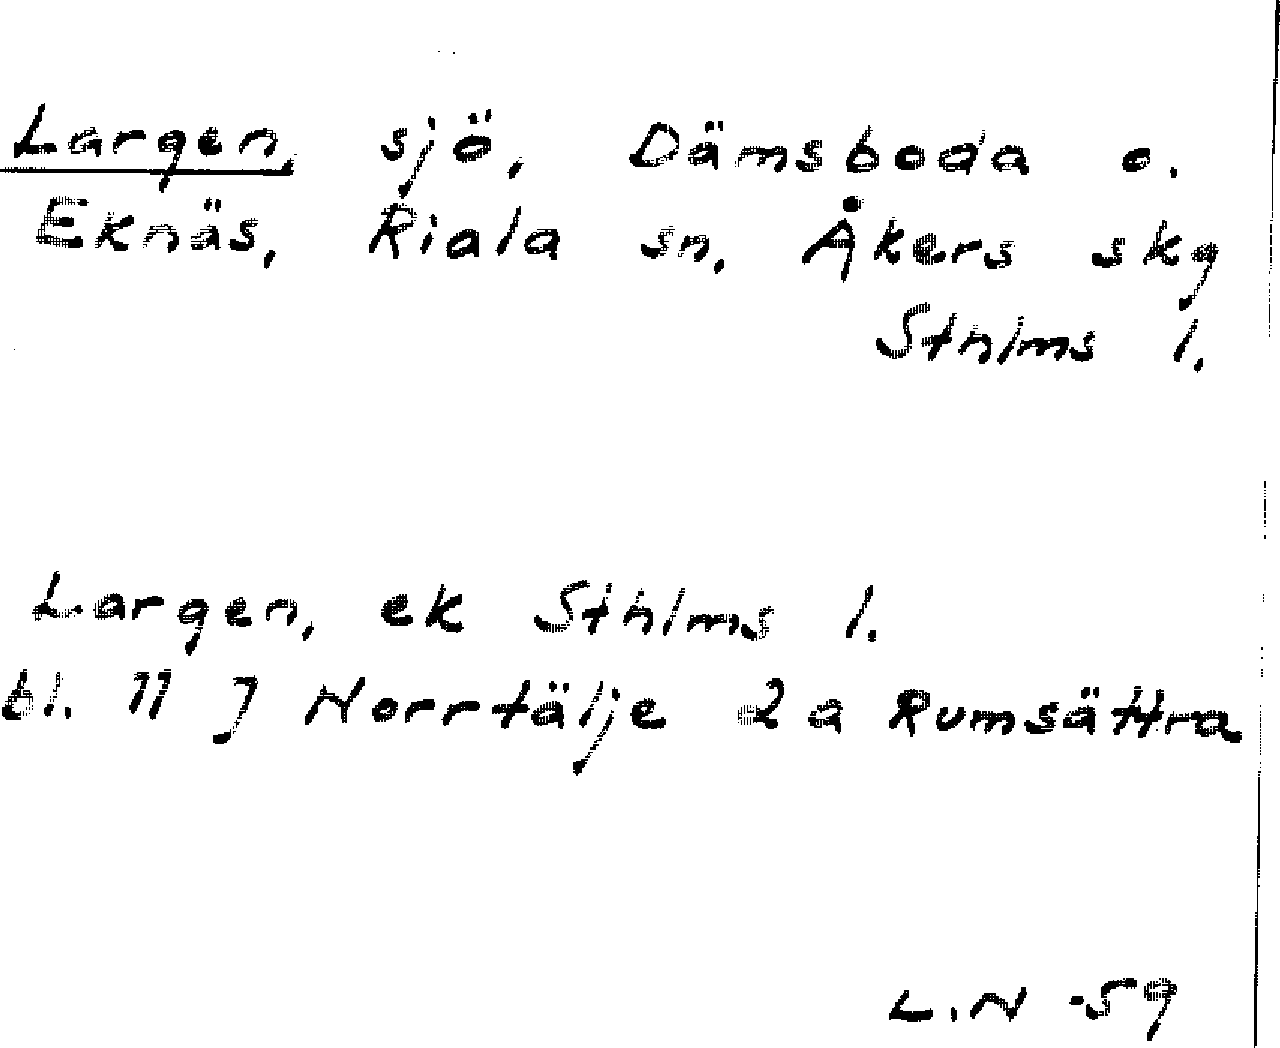 Largen, sjö, Dämsboda o.
Eknäs, Riala sn, Åkers skg
Sthlms l.
Largen, ek Sthlms l.
bl. 11 J Norrtälje 2a Rumsättra
L.N -59